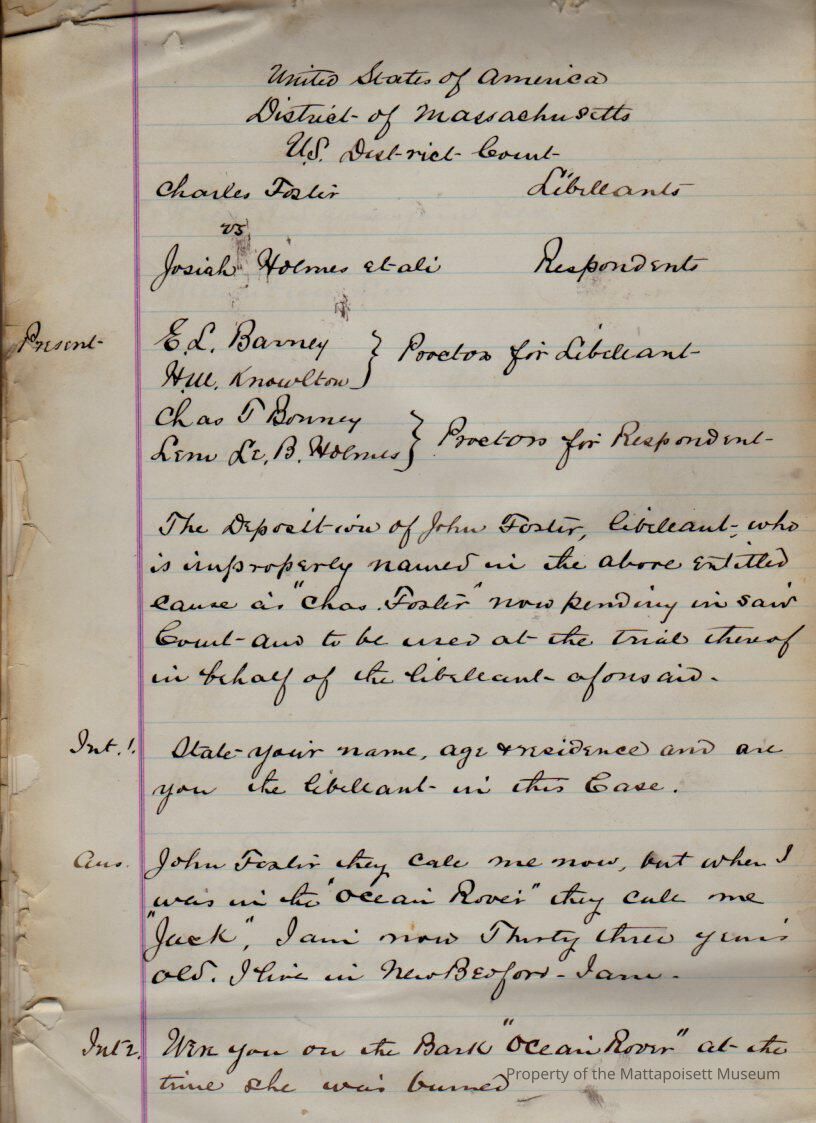 United States of America
District of Massachusetts
U.S. District Court
Charles Foster Libellants
vs
Josiah Holmes et ali Respondents
Present E. L. Barney
H.M. Knowlton } Proctors for Libellant
Chas T Bonney
Lem Le. B. Holmes } Proctors for Respondent
The Deposition of John Foster, libellant, who
is improperly named in the above entitled
cause as "Chas. Foster" now pending in said
Court and to be used at the trial thereof
in behalf of the libellant aforesaid.
Int. 1. State your name, age & residence and are
you the libellant in this Case.
Ans. John Foster they call me now, but when I
was in the "Ocean Rover" they call me
"Jack", I am now Thirty three years
old. I live in New Bedford - I am.
Int 2. Were you on the Bark "Ocean Rover" at the
time she was burned
Property of the Mattapoisett Museum